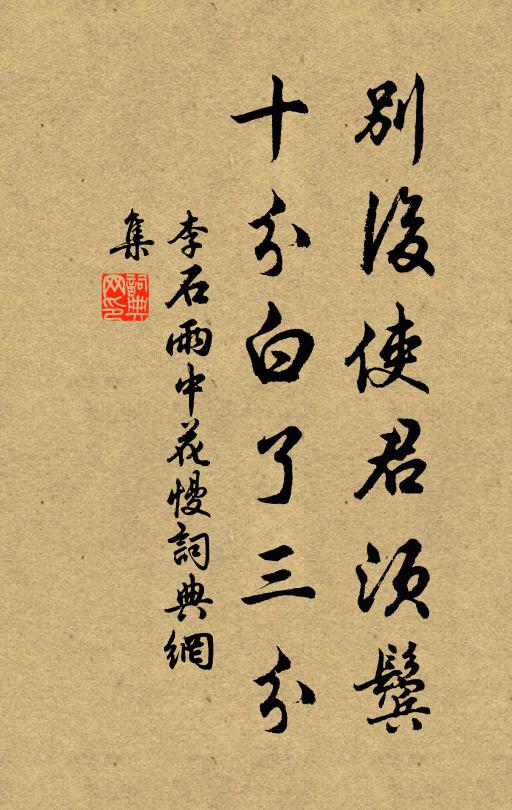 別後使君須鬢
十分白了三分
李石雨中花慢詞典網
集
詞典
网印